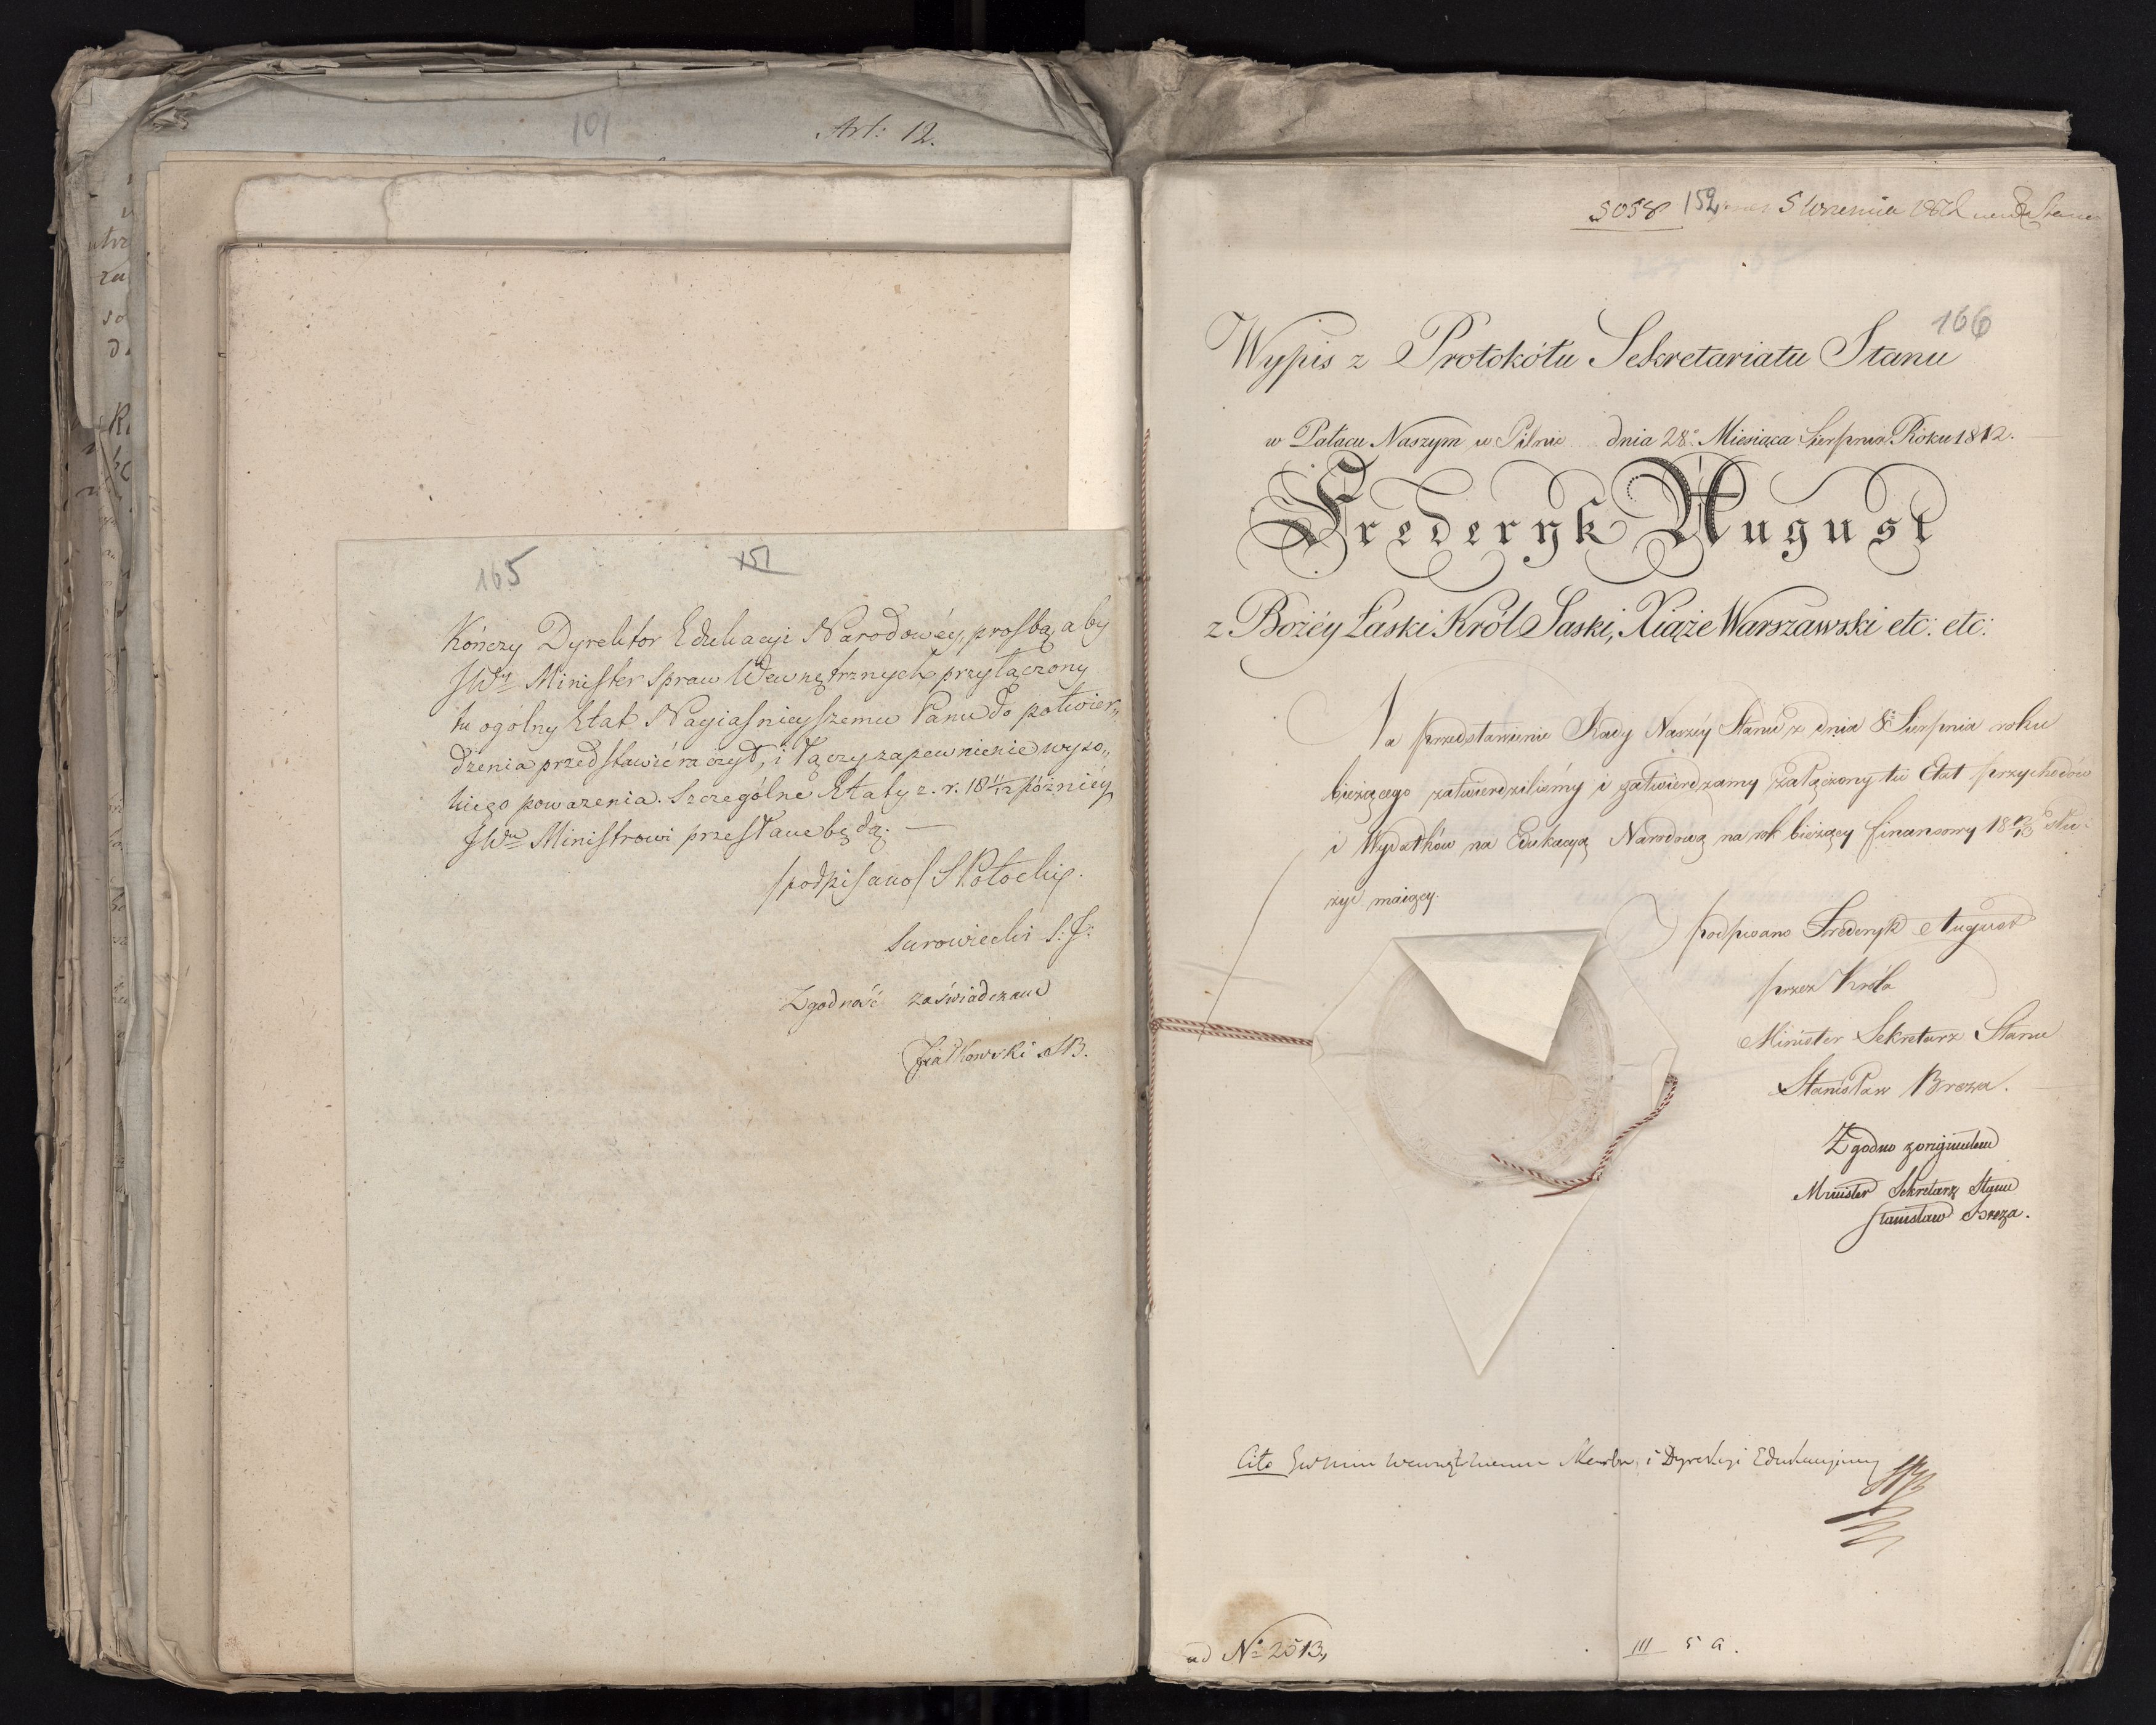 101
Art: 12.
165
151
Kończy Dyrektor Edukacyi Narodowéy, prośbą, aby
JWny Minister Spraw Wewnętrznych przyłączony
tu ogólny Etat Nayiaśnieyszemu Panu do potwier„
dzenia przedstawić raczył, i łączy zapewnienie wyso„
kiego poważenia. Szczególne Etaty z. r. 18 11/12 późniéy
JWu Ministrowi przesłane będą. —
/podpisano/ S Potocki.
Surowiecki S: J:
Zgodność zaświadczam
5058 152 5 Września
166
Wypis z Protokółu Sekretariatu Stanu
w Pałacu Naszym w Pilnic dnia 28o Miesiąca Sierpnia Roku 1812.
Fryderyk August
z Bożéy Łaski Król Saski, Xiąże Warszawski etc: etc:
Na przedstawienie Rady Naszéy Stanu z dnia 8 Sierpnia roku
bieżącego zatwierdziliśmy i zatwierdzamy załączony tu Etat przychodów
i Wydatków na Edukacyą Narodową na rok bieżący finansowy 18 12/13 słu-
żyć maiący.
podpisano Frederyk August
przez Króla
Minister Sekretarz Stanu
Stanisław Breza.
Zgodno z oryginałem
Minister Sekretarz Stanu
Stanisław Breza.
Cito i Dyrekcyi Edukacyiney
ad No 2513,
III 5 a.